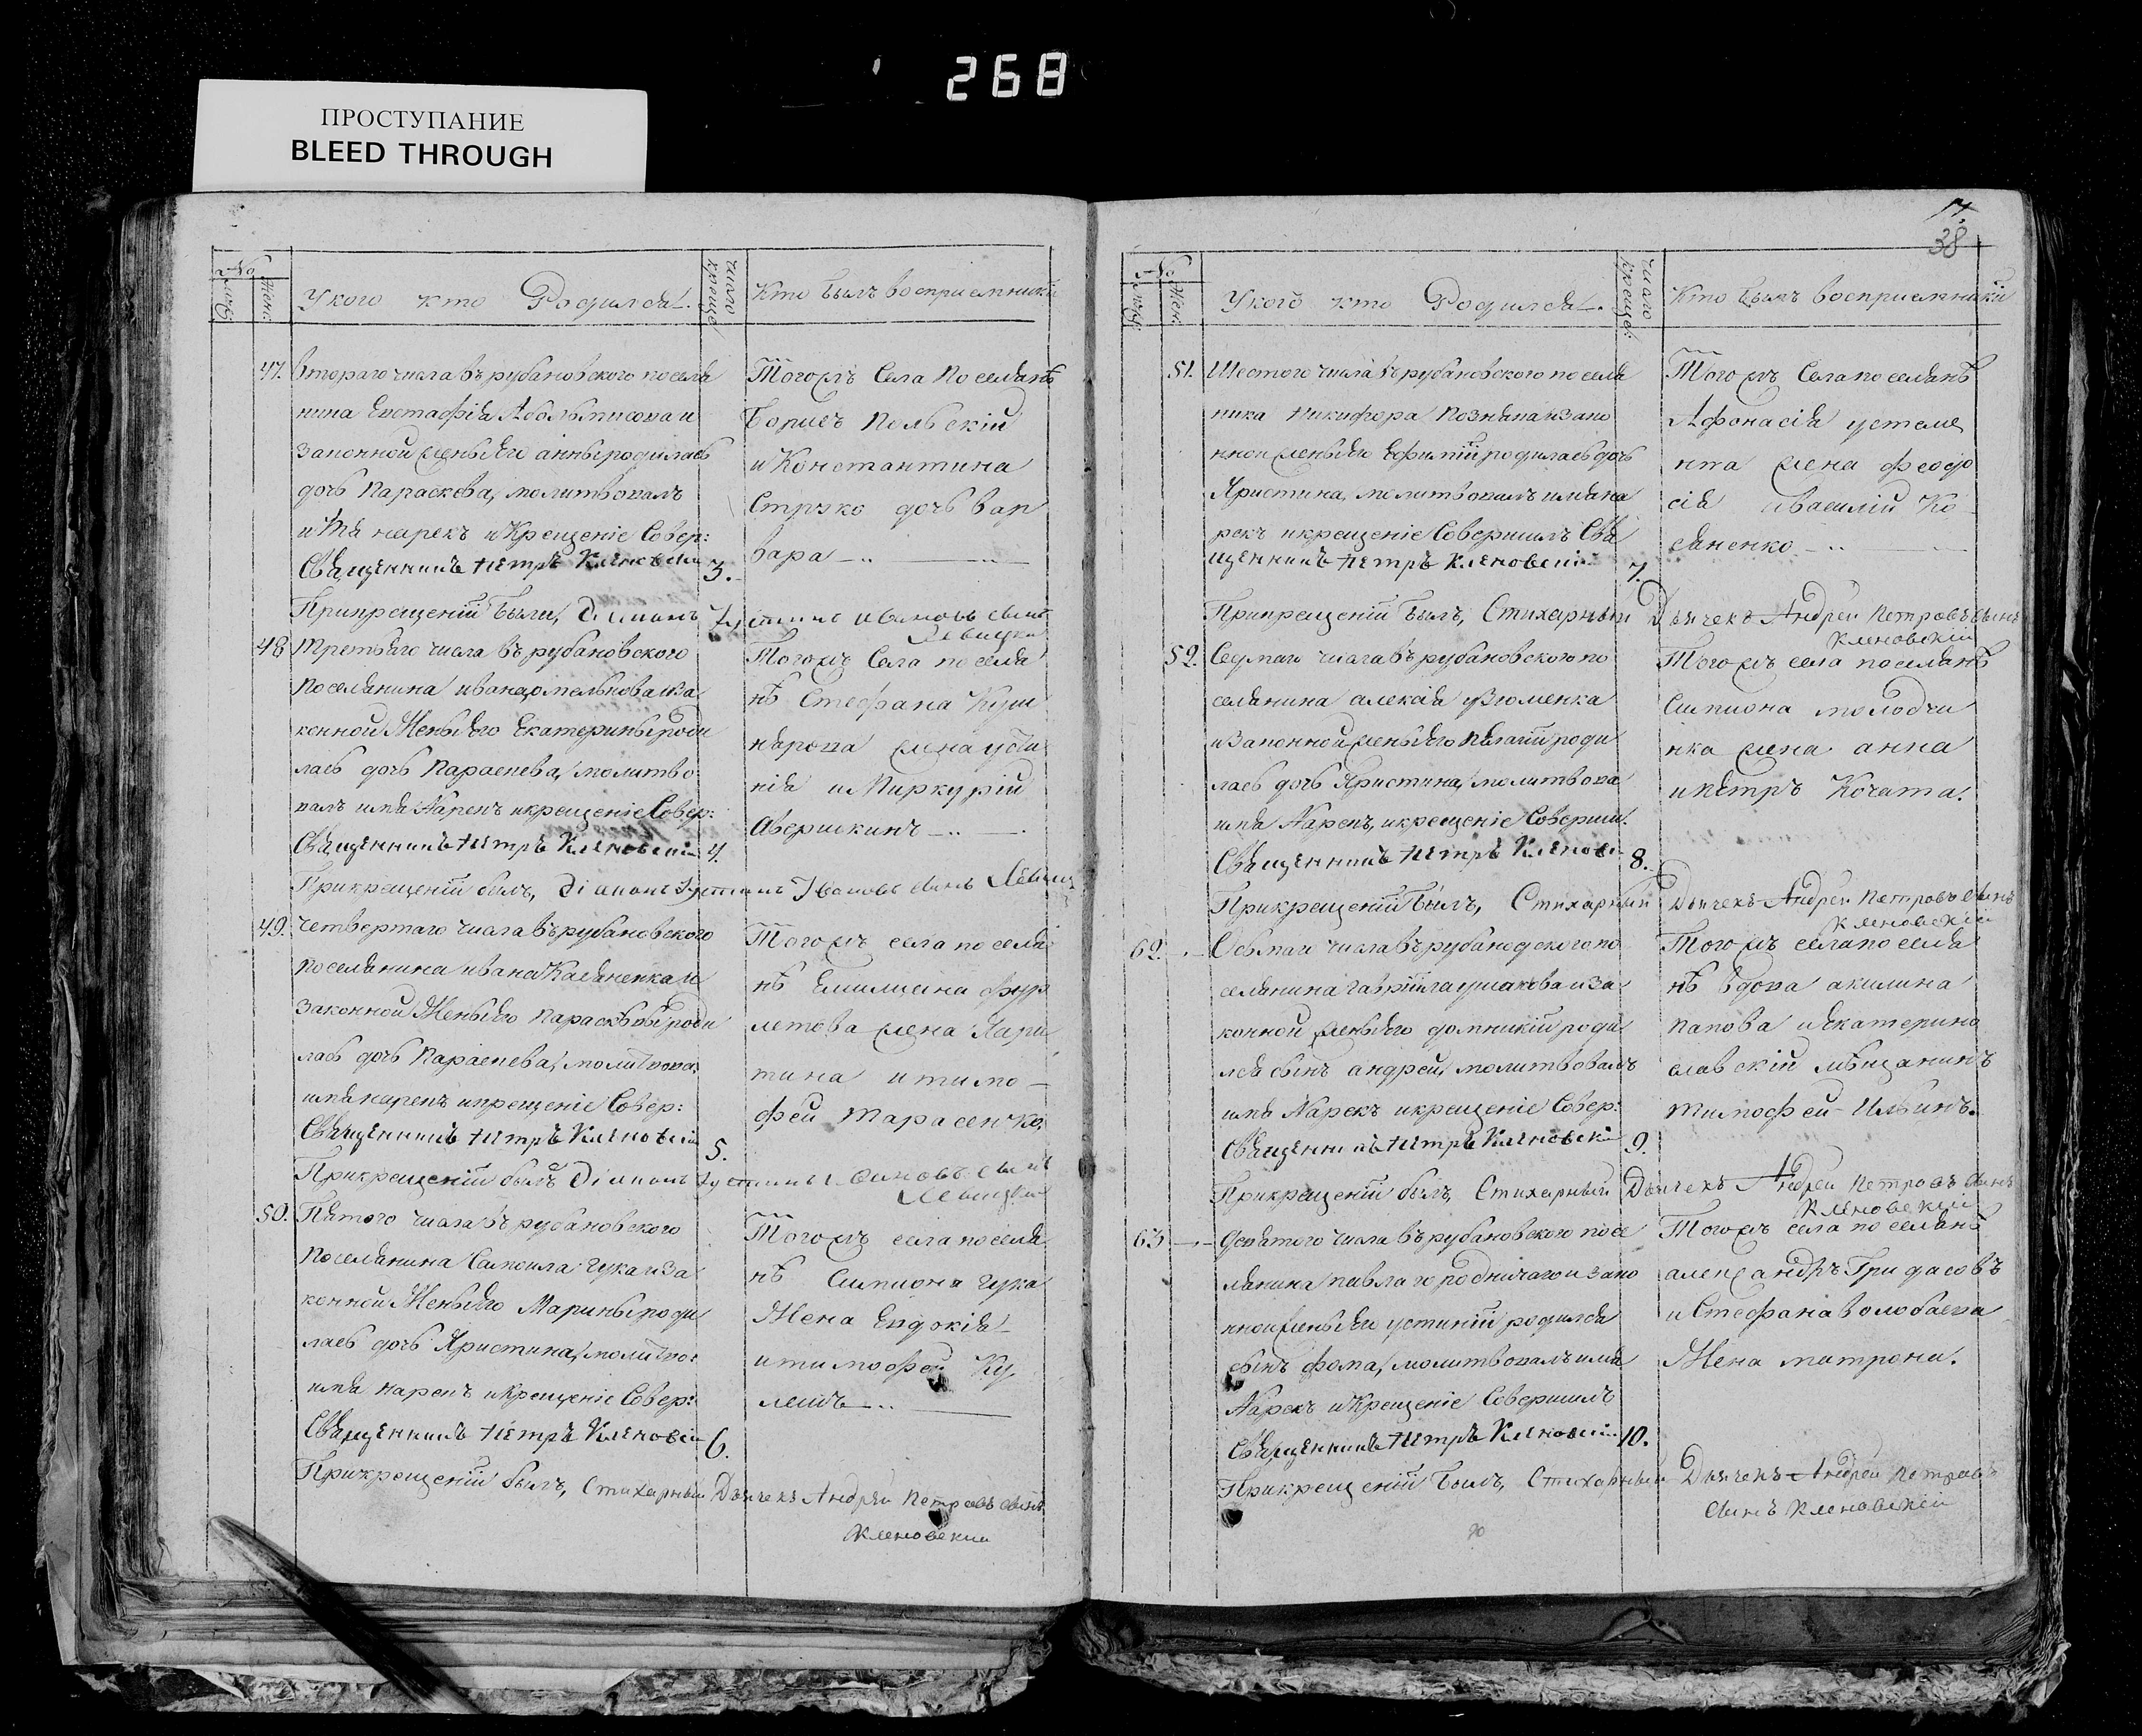 268
ПРОСТУПАНИЕ
BLEED THROUGH
№
Муж:
Жен:
У кого кто Родился.
число
крещен:
Кто былъ восприемники
47.
втораго числа въ рубановского поселя
нина Евстафія и
законной жены его анны родилась
дочь Параскева, молитвовалъ
имя нарекъ и Крещеніе Совер:
Священникъ Петръ Кленовскій
3.
Тогожъ Села поселянъ
Борисъ Польскій
и Константина
дочь вар
вара
При крещеніи были, Діаконъ Іустинъ Ивановъ сынъ
Левицкій
48
Третьяго числа въ рубановского
поселянина ивана и за
конной Жены его Екатерины роди
лась дочь Параскева, молитво
валъ имя Нарекъ и крещеніе Совер:
Священникъ Петръ Кленовскій
4.
Тогожъ Села поселя
нъ Стефана Куш
нарова жена усти
нія и Миркурій
Аверишкинъ
При крещеніи былъ, Діаконъ Іустинъ Ивановъ сынъ Левиц
49.
четвертаго числа въ рубановского
поселянина ивана Касяненка и
законной Жены его Парасковьи роди
лась дочь Параскева, молитвова
имя нарекъ и крещеніе Совер:
Священникъ Петръ Кленовскій
5.
Тогожъ села поселя
нъ
летова жена Хари
тина и тимо
фей Тарасенко,
При крещеніи былъ Діаконъ Іустинъ Ивановъ сынъ
Левицкій
50.
Пятого числа въ рубановского
поселянина Самоила Гука и за
конной Жены его Марины роди
лась дочь Христина, молитво:
имя нарекъ и Крещеніе Совер:
Священникъ Петръ Кленовскій
6.
Тогожъ села поселя
нъ Симиона Гука
Жена Евдокія
и тимофей Ку
лешъ
При крещеніи былъ, Стихарный Дьячекъ Андрей Петровъ сынъ
Кленовскій
17.
38
№
Муж:
Жен:
У кого кто Родился.
число
крещен:
Кто былъ восприемники
51.
Шестого числа въ рубановского поселя
нина Никифора и зако
нной жены его Ефиміи родилась дочь
Христина, молитвовалъ имя на
рекъ и крещеніе Совершилъ Свя
щенникъ Петръ Кленовскій
7.
Тогожъ Села поселянъ
Афонасія устиме
нка жена феодо
сія и василій Ко
сяненко
При крещеніи былъ, Стихарный Дьячекъ Андрей Петровъ сынъ
Кленовскій
52.
Седмаго числа въ рубановского по
селянина алексія
и законной жены его Пелагіи роди
лась дочь Христина, молитвова
имя Нарекъ, и крещеніе Соверши:
Священникъ Петръ Кленовс
8.
Тогожъ села поселянъ
Симиона молодчи
нка жена анна
и петръ Кочата.
При крещеніи былъ, Стихарный Дьячекъ Андрей Петровъ сынъ
Кленовскій
62.
Осьмаго числа въ рубановского по
селянина гавріила ушакова и за
конной жены его домникіи роди
лся сынъ андрей, молитвовалъ
имя Нарекъ и крещеніе Совер:
Священникъ Петръ Кленовскі
9.
Тогожъ села поселя
нъ вдова акилина
папова и Екатерино
славскій мѣщанинъ
тимофей Ильинъ.
При крещеніи былъ, Стихарный Дьячекъ Андрей Петровъ сынъ
Кленовскій
63
девятого числа въ рубановского посе
лянина павла городничаго и зако
нной жены его устиніи родился
сынъ фома, молитвовалъ имя
Нарекъ и Крещеніе Совершилъ
Священникъ Петръ Кленовскій
10.
Тогожъ села поселянъ
александръ Гридасовъ
и Стефана волобаева
Жена матрона.
При крещеніи былъ, Стихарный Дьячекъ Андрей Петровъ
сынъ Кленовскій